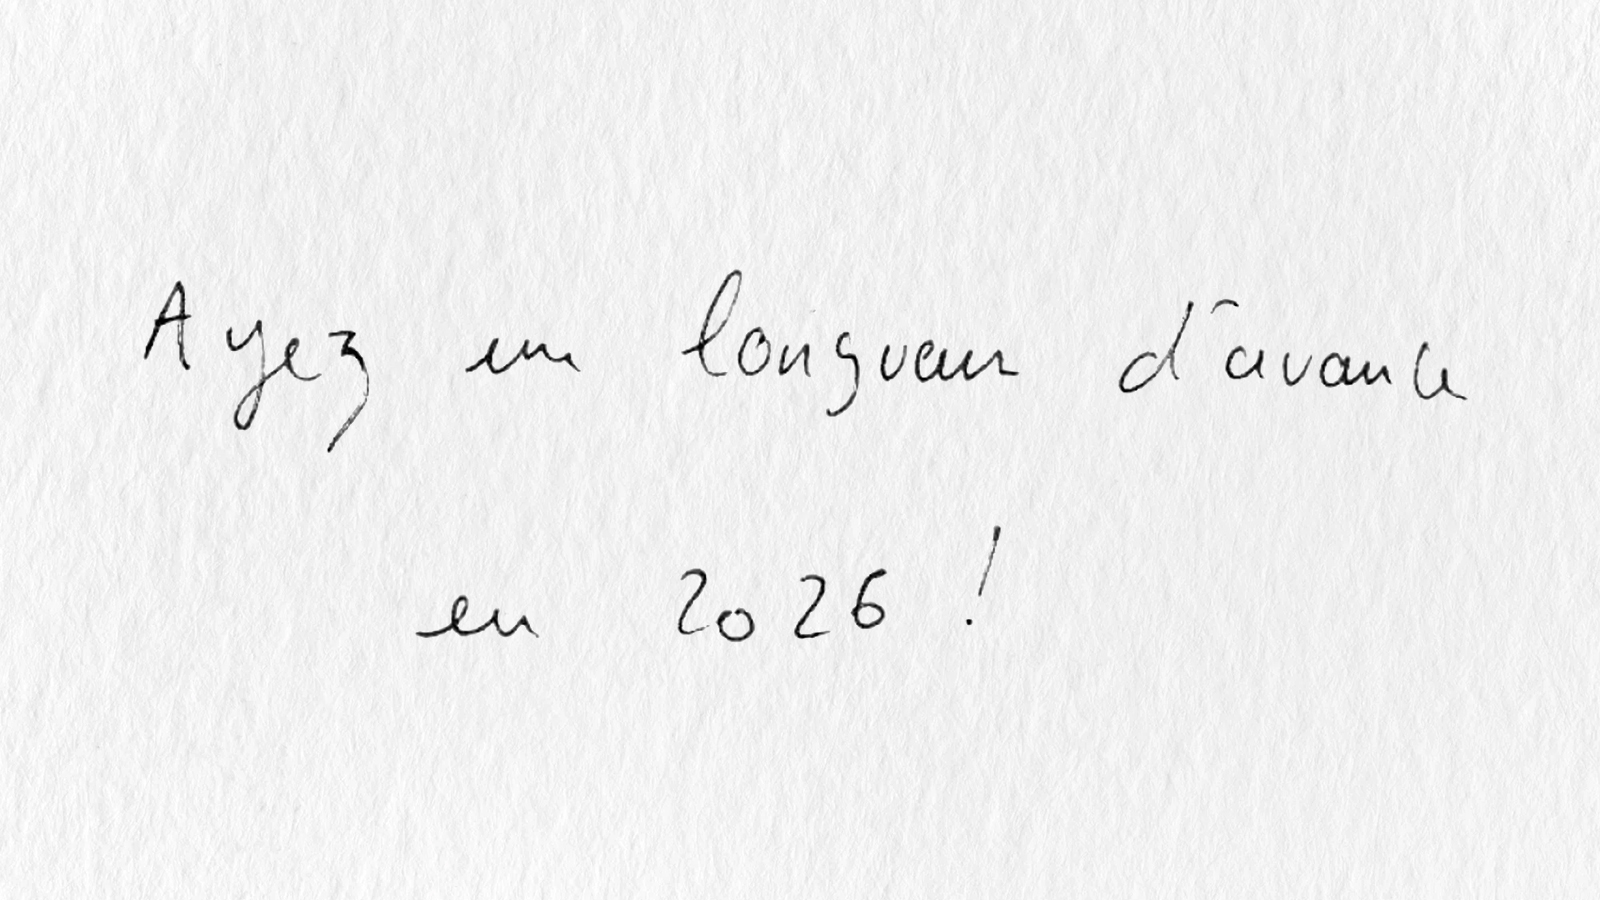 Ayez une longueur d'avance
en 2026 !